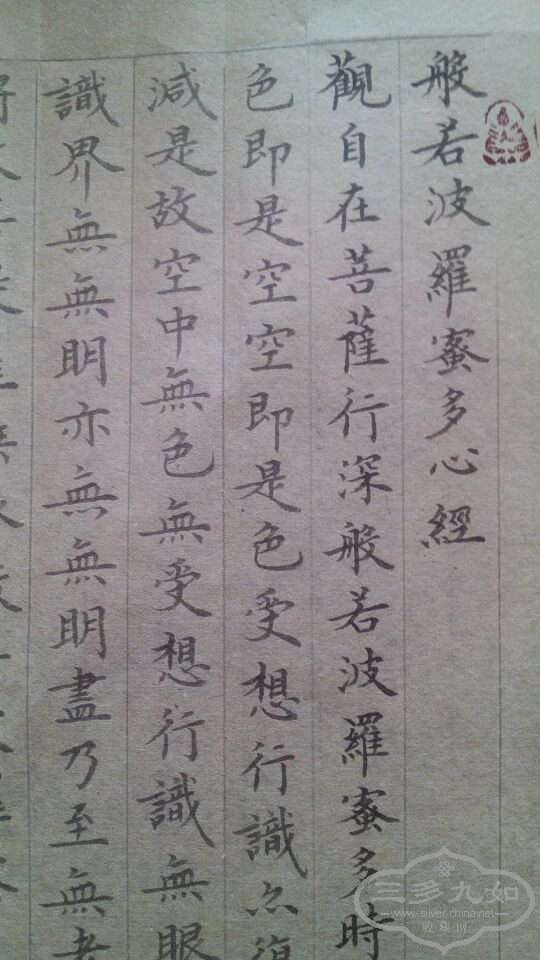 般若波羅蜜多心經
觀自在菩薩行深般若波羅蜜多時
色即是空空即是色受想行識亦復
減是故空中無色無受想行識無眼
識界無無明亦無無明盡乃至無老
三多九如
www.silver-china.net
收藏网